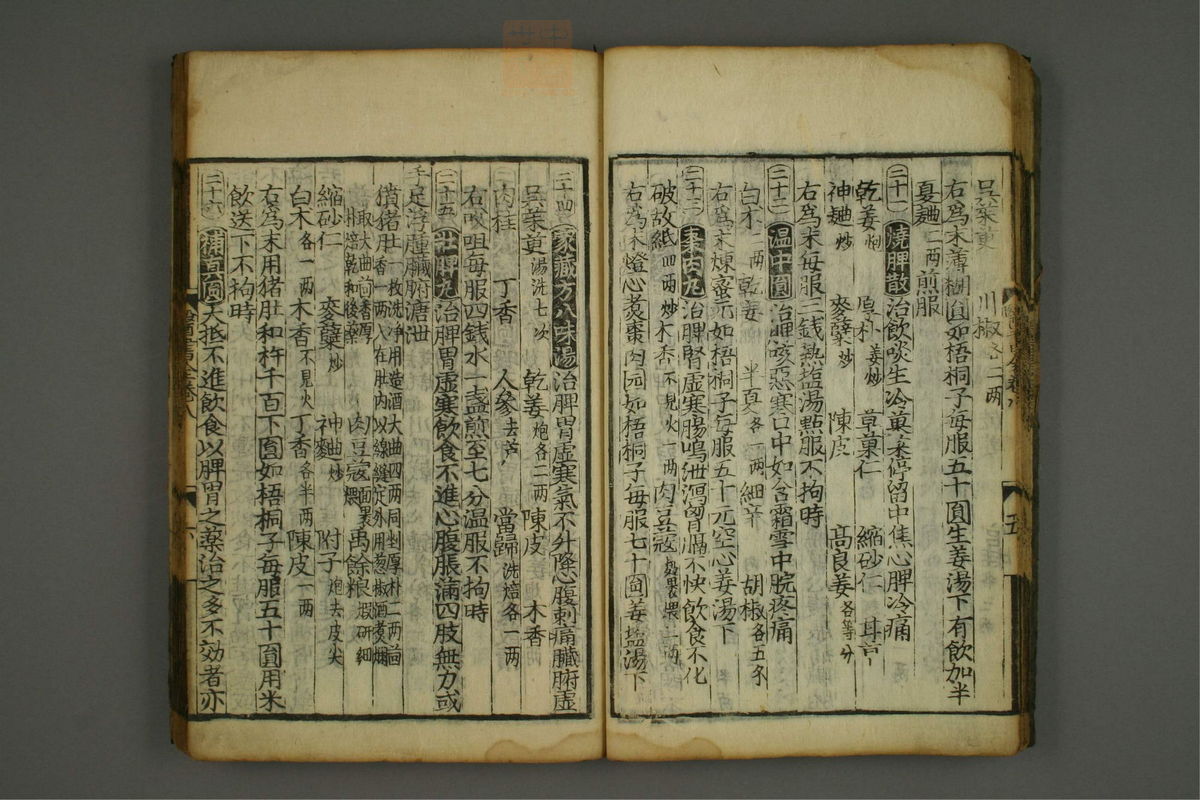 吳茱萸 川椒各二两
右爲末薄糊圎如梧桐子每服五十圎生姜湯下有飲加半
夏麯二两煎服
二十一 燒脾散 治飲啖生冷菓菜停留中焦心脾冷痛
乾姜炮 厚朴姜炒 草菓仁 縮砂仁 甘草
神麯炒 麥蘖炒 陳皮 高良姜各等分
右爲末每服三錢熱塩湯點服不拘時
二十二 温中圎 治脾咳惡寒口中如含霜雪中脘疼痛
白术二两 乾姜 半夏各一两 細辛 胡椒各五
右爲末煉蜜元如梧桐子每服五十元空心姜湯下
二十三 棗肉丸 治脾腎虛寒腸鳴泄瀉胷膈不快飲食不化
破故紙四两炒 木香不見火一两 肉豆蔻麫裹煨二两
右爲末燈心煑棗肉园如梧桐子每服七十圎姜塩湯下
五
二十四 家藏方八味湯 治脾胃虛寒氣不升降心腹刺痛臟腑虛
吳茱萸湯洗七次 乾姜炮各二两 陳皮 木香
肉桂 丁香 人參去芦 當歸洗焙各一两
右㕮咀每服四錢水一盞煎至七分温服不拘時
二十五 壯脾丸 治脾胃虛寒飲食不進心腹脹滿四肢無力或
手足浮腫臟腑溏泄
猪肚一枚洗淨用造酒大曲四两同剉厚朴二两茴
香一两入在肚内以線縫定外用葱椒酒煑爛
取大曲茴香厚
朴焙乾和後藥 肉豆蔻麵裹煨 禹餘粮煆研細
縮砂仁 麥蘖炒 神麯炒 附子炮去皮尖
白术各一两 木香不見火 丁香各半两 陳皮一两
右爲末用猪肚和杵千百下圎如梧桐子每服五十圎用米
飲送下不拘時
二十六 補真圎 大抵不進飲食以脾胃之藥治之多不効者亦
六